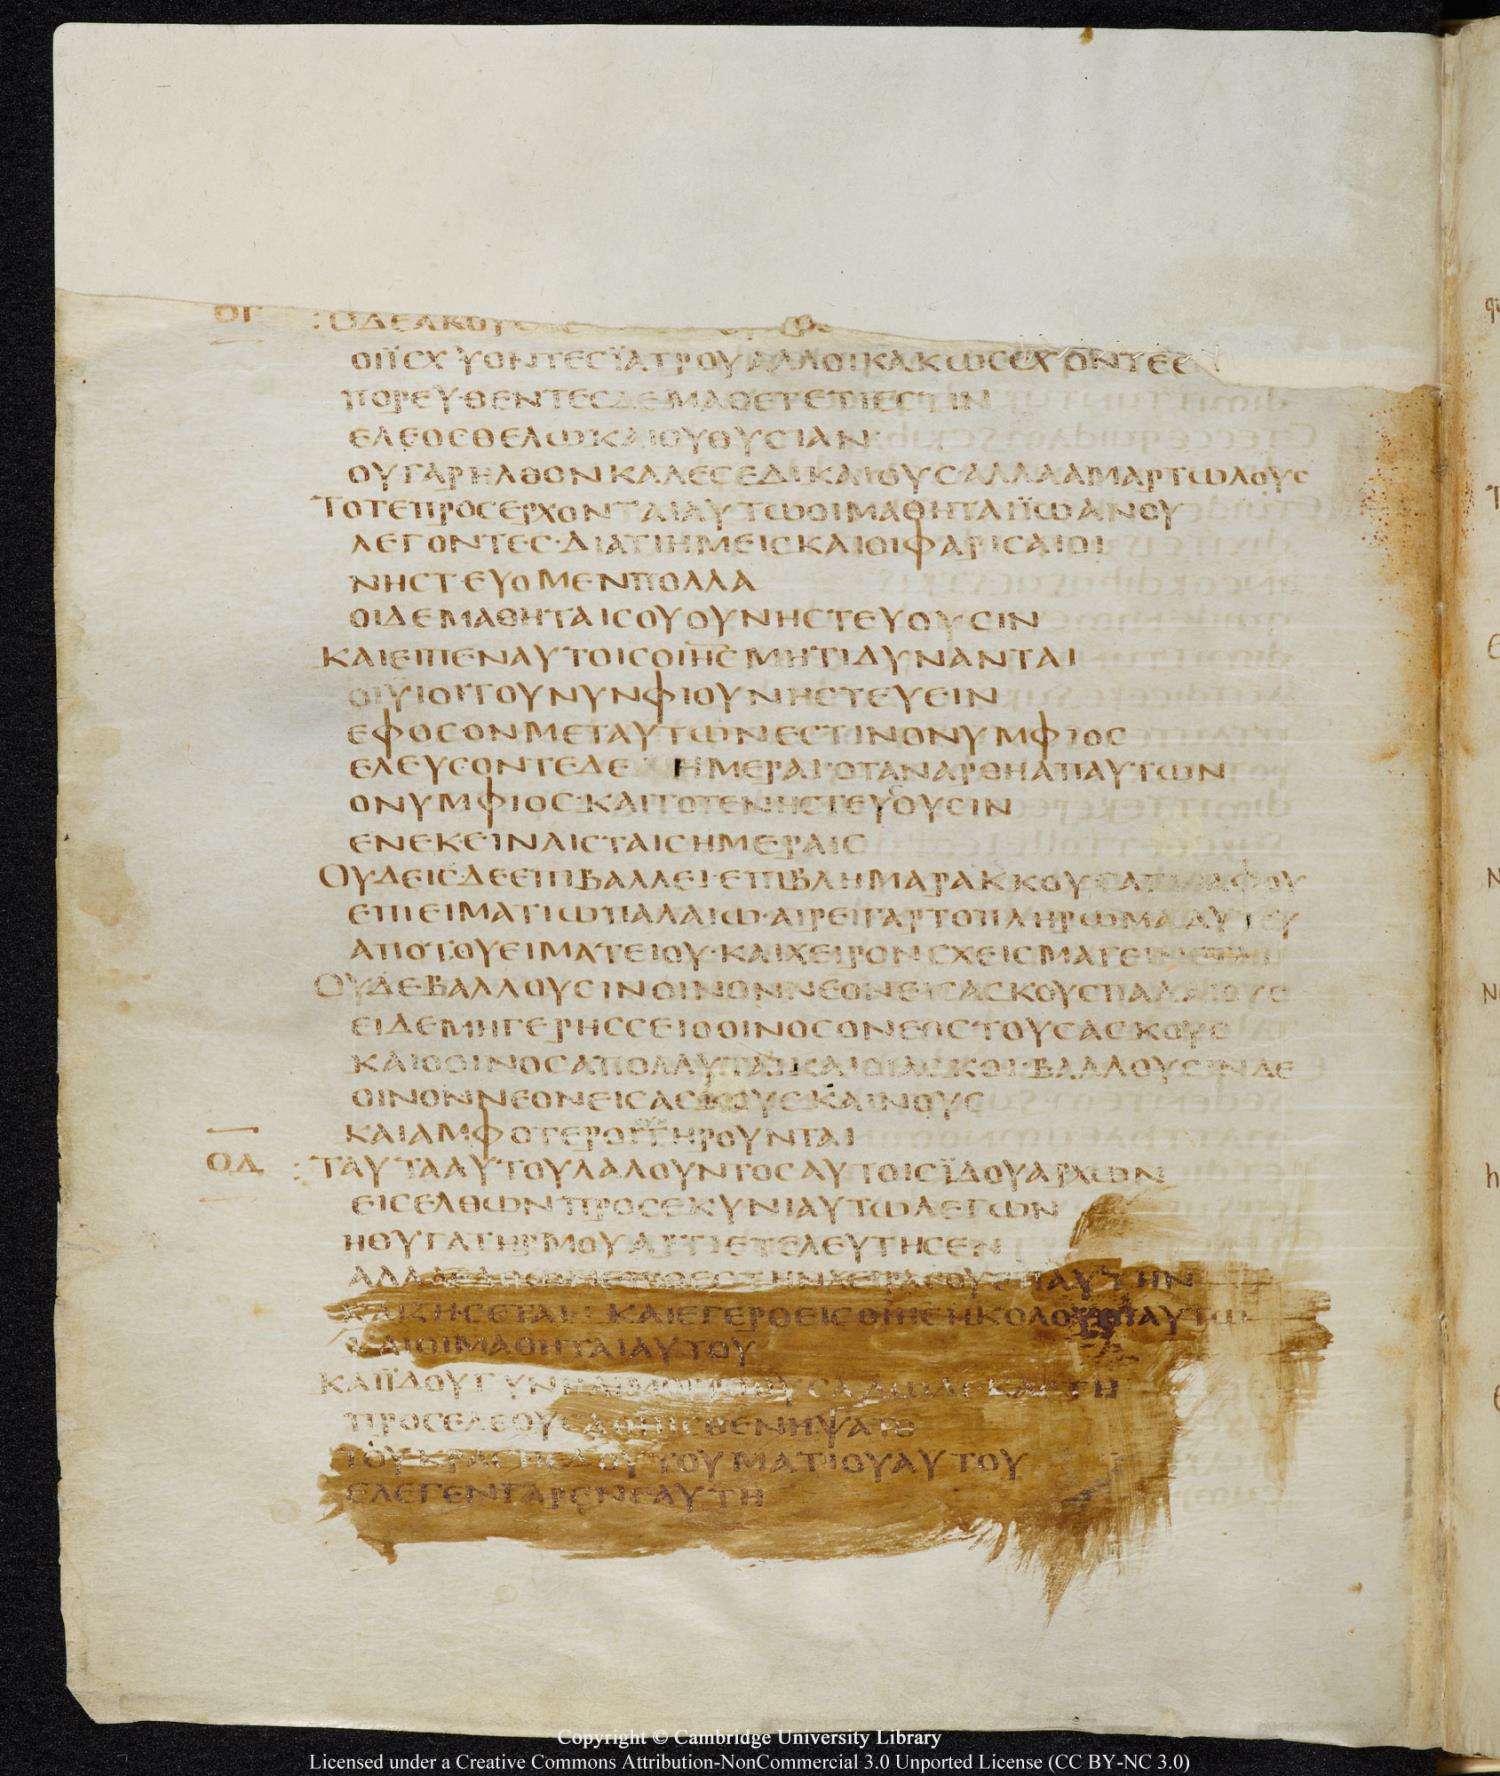 ΟΓ ΟΔΕΑΚΟΥ
ΟΙΪΣΧΥΟΝΤΕΣΪΑΤΡΟΥΑΛΛΟΙΚΑΚΩΣΕΧΟΝΤΕΣ
ΠΟΡΕΥΘΕΝΤΕΣΔΕΜΑΘΕΤΕΤΙΕΣΤΙΝ
ΕΛΕΟΣΘΕΛΩΚΑΙΟΥΘΥΣΙΑΝ
ΟΥΓΑΡΗΛΘΟΝΚΑΛΕΣΕΔΙΚΑΙΟΥΣΑΛΛΑΑΜΑΡΤΩΛΟΥΣ
ΤΟΤΕΠΡΟΣΕΡΧΟΝΤΑΙΑΥΤΩΟΙΜΑΘΗΤΑΙΪΩΑΝΟΥ
ΛΕΓΟΝΤΕΣ·ΔΙΑΤΙΗΜΕΙΣΚΑΙΟΙΦΑΡΙΣΑΙΟΙ
ΝΗΣΤΕΥΟΜΕΝΠΟΛΛΑ
ΟΙΔΕΜΑΘΗΤΑΙΣΟΥΟΥΝΗΣΤΕΥΟΥΣΙΝ
ΚΑΙΕΙΠΕΝΑΥΤΟΙΣΟΙΗΣΜΗΤΙΔΥΝΑΝΤΑΙ
ΟΙΫΙΟΙΤΟΥΝΥΝΦΙΟΥΝΗΣΤΕΥΕΙΝ
ΕΦΟΣΟΝΜΕΤΑΥΤΩΝΕΣΤΙΝΟΝΥΜΦΙΟΣ
ΕΛΕΥΣΟΝΤΕΔΕ ΗΜΕΡΑΙ·ΟΤΑΝΑΡΘΗΑΠΑΥΤΩΝ
ΟΝΥΜΦΙΟΣ·ΚΑΙΤΟΤΕΝΗΣΤΕΥΟΥΣΙΝ
ΕΝΕΚΕΙΝΑΙΣΤΑΙΣΗΜΕΡΑΙΣ
ΟΥΔΕΙΣ·ΔΕΕΠΙΒΑΛΛΕΙ·ΕΠΙΒΛΗΜΑΡΑΚΚΟΥΣΑΓΝΑΦΟΥ
ΕΠΙΕΙΜΑΤΙΩΠΑΛΑΙΩ·ΑΙΡΕΙΓΑΡΤΟΠΛΗΡΩΜΑΑΥΤΟΥ
ΑΠΟΤΟΥΕΙΜΑΤΕΙΟΥ·ΚΑΙΧΕΙΡΟΝΣΧΕΙΣΜΑΓΕΙΝΕΤΑΙ
ΟΥΔΕΒΑΛΛΟΥΣΙΝΟΙΝΟΝΝΕΟΝΕΙΣΑΣΚΟΥΣΠΑΛΑΙΟΥΣ
ΕΙΔΕΜΗΓΕΡΗΣΣΕΙΟΟΙΝΟΣΟΝΕΟΣΤΟΥΣΑΣΚΟΥΣ
ΚΑΙΟΟΙΝΟΣΑΠΟΛΛΥΤΑΙΚΑΙΟΙΑΣΚΟΙ·ΒΑΛΛΟΥΣΙΝΔΕ
ΟΙΝΟΝΝΕΟΝΕΙΣΑΣΚΟΥΣΚΑΙΝΟΥΣ
ΚΑΙΑΜΦΟΤΕΡΟΙΤΗΡΟΥΝΤΑΙ
ΟΔ ΤΑΥΤΑΑΥΤΟΥΛΑΛΟΥΝΤΟΣΑΥΤΟΙΣΪΔΟΥΑΡΧΩΝ
ΕΙΣΕΛΘΩΝΠΡΟΣΕΚΥΝΙΑΥΤΩΛΕΓΩΝ
ΗΘΥΓΑΤΗΡΜΟΥΑΡΤΙΕΤΕΛΕΥΤΗΣΕΝ
ΚΑΙΖΗΣΕΤΑΙ: ΚΑΙΕΓΕΡΘΕΙΣΟΙΗΣΗΚΟΛΟΥΘΙΑΥΤΩ
ΚΑΙΟΙΜΑΘΗΤΑΙΑΥΤΟΥ
ΚΑΙΪΔΟΥΓΥΝΗ
ΠΡΟΣΕΛΕΟΥΣΑΟΠΙΣΘΕΝΗΨΑΤΟ
ΤΟΥΚΡΑΣΠΕΔΟΥΤΟΥΜΑΤΙΟΥΑΥΤΟΥ
ΕΛΕΓΕΝΓΑΡΕΝΕΑΥΤΗ
Copyright © Cambridge University Library
Licensed under a Creative Commons Attribution-NonCommercial 3.0 Unported License (CC BY-NC 3.0)